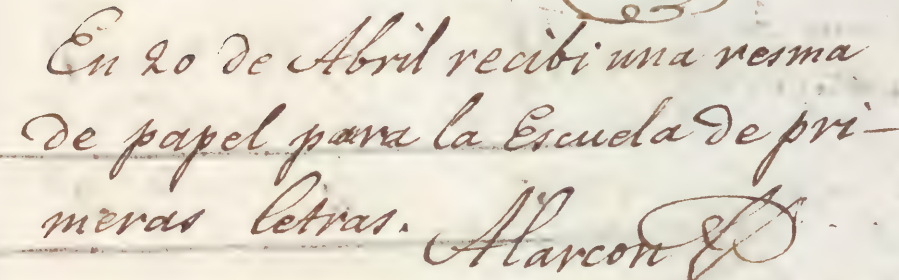 En 20 de Abril recibi una resma
de papel para la Escuela de pri-
meras letras. Alarcon